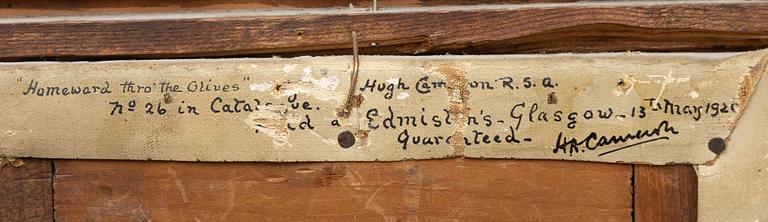 "Homeward thro' the Olives" Hugh Cameron R.S.A.
No 26 in Catalogue.
Sold at Edmiston's - Glasgow - 13th May 192
Guaranteed -
HA. Cameron